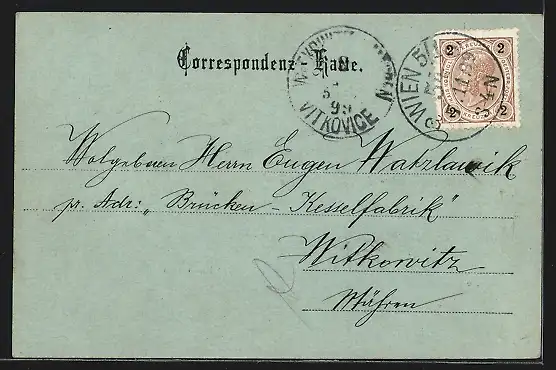 Correspondenz-Karte.
VITKOVICE
99
WIEN
2 2
2 2
Wolgeboren Herrn Eugen Watzlawik
pr. Adr: „Brücken - Kesselfabrik"
Witkowitz
Mähren